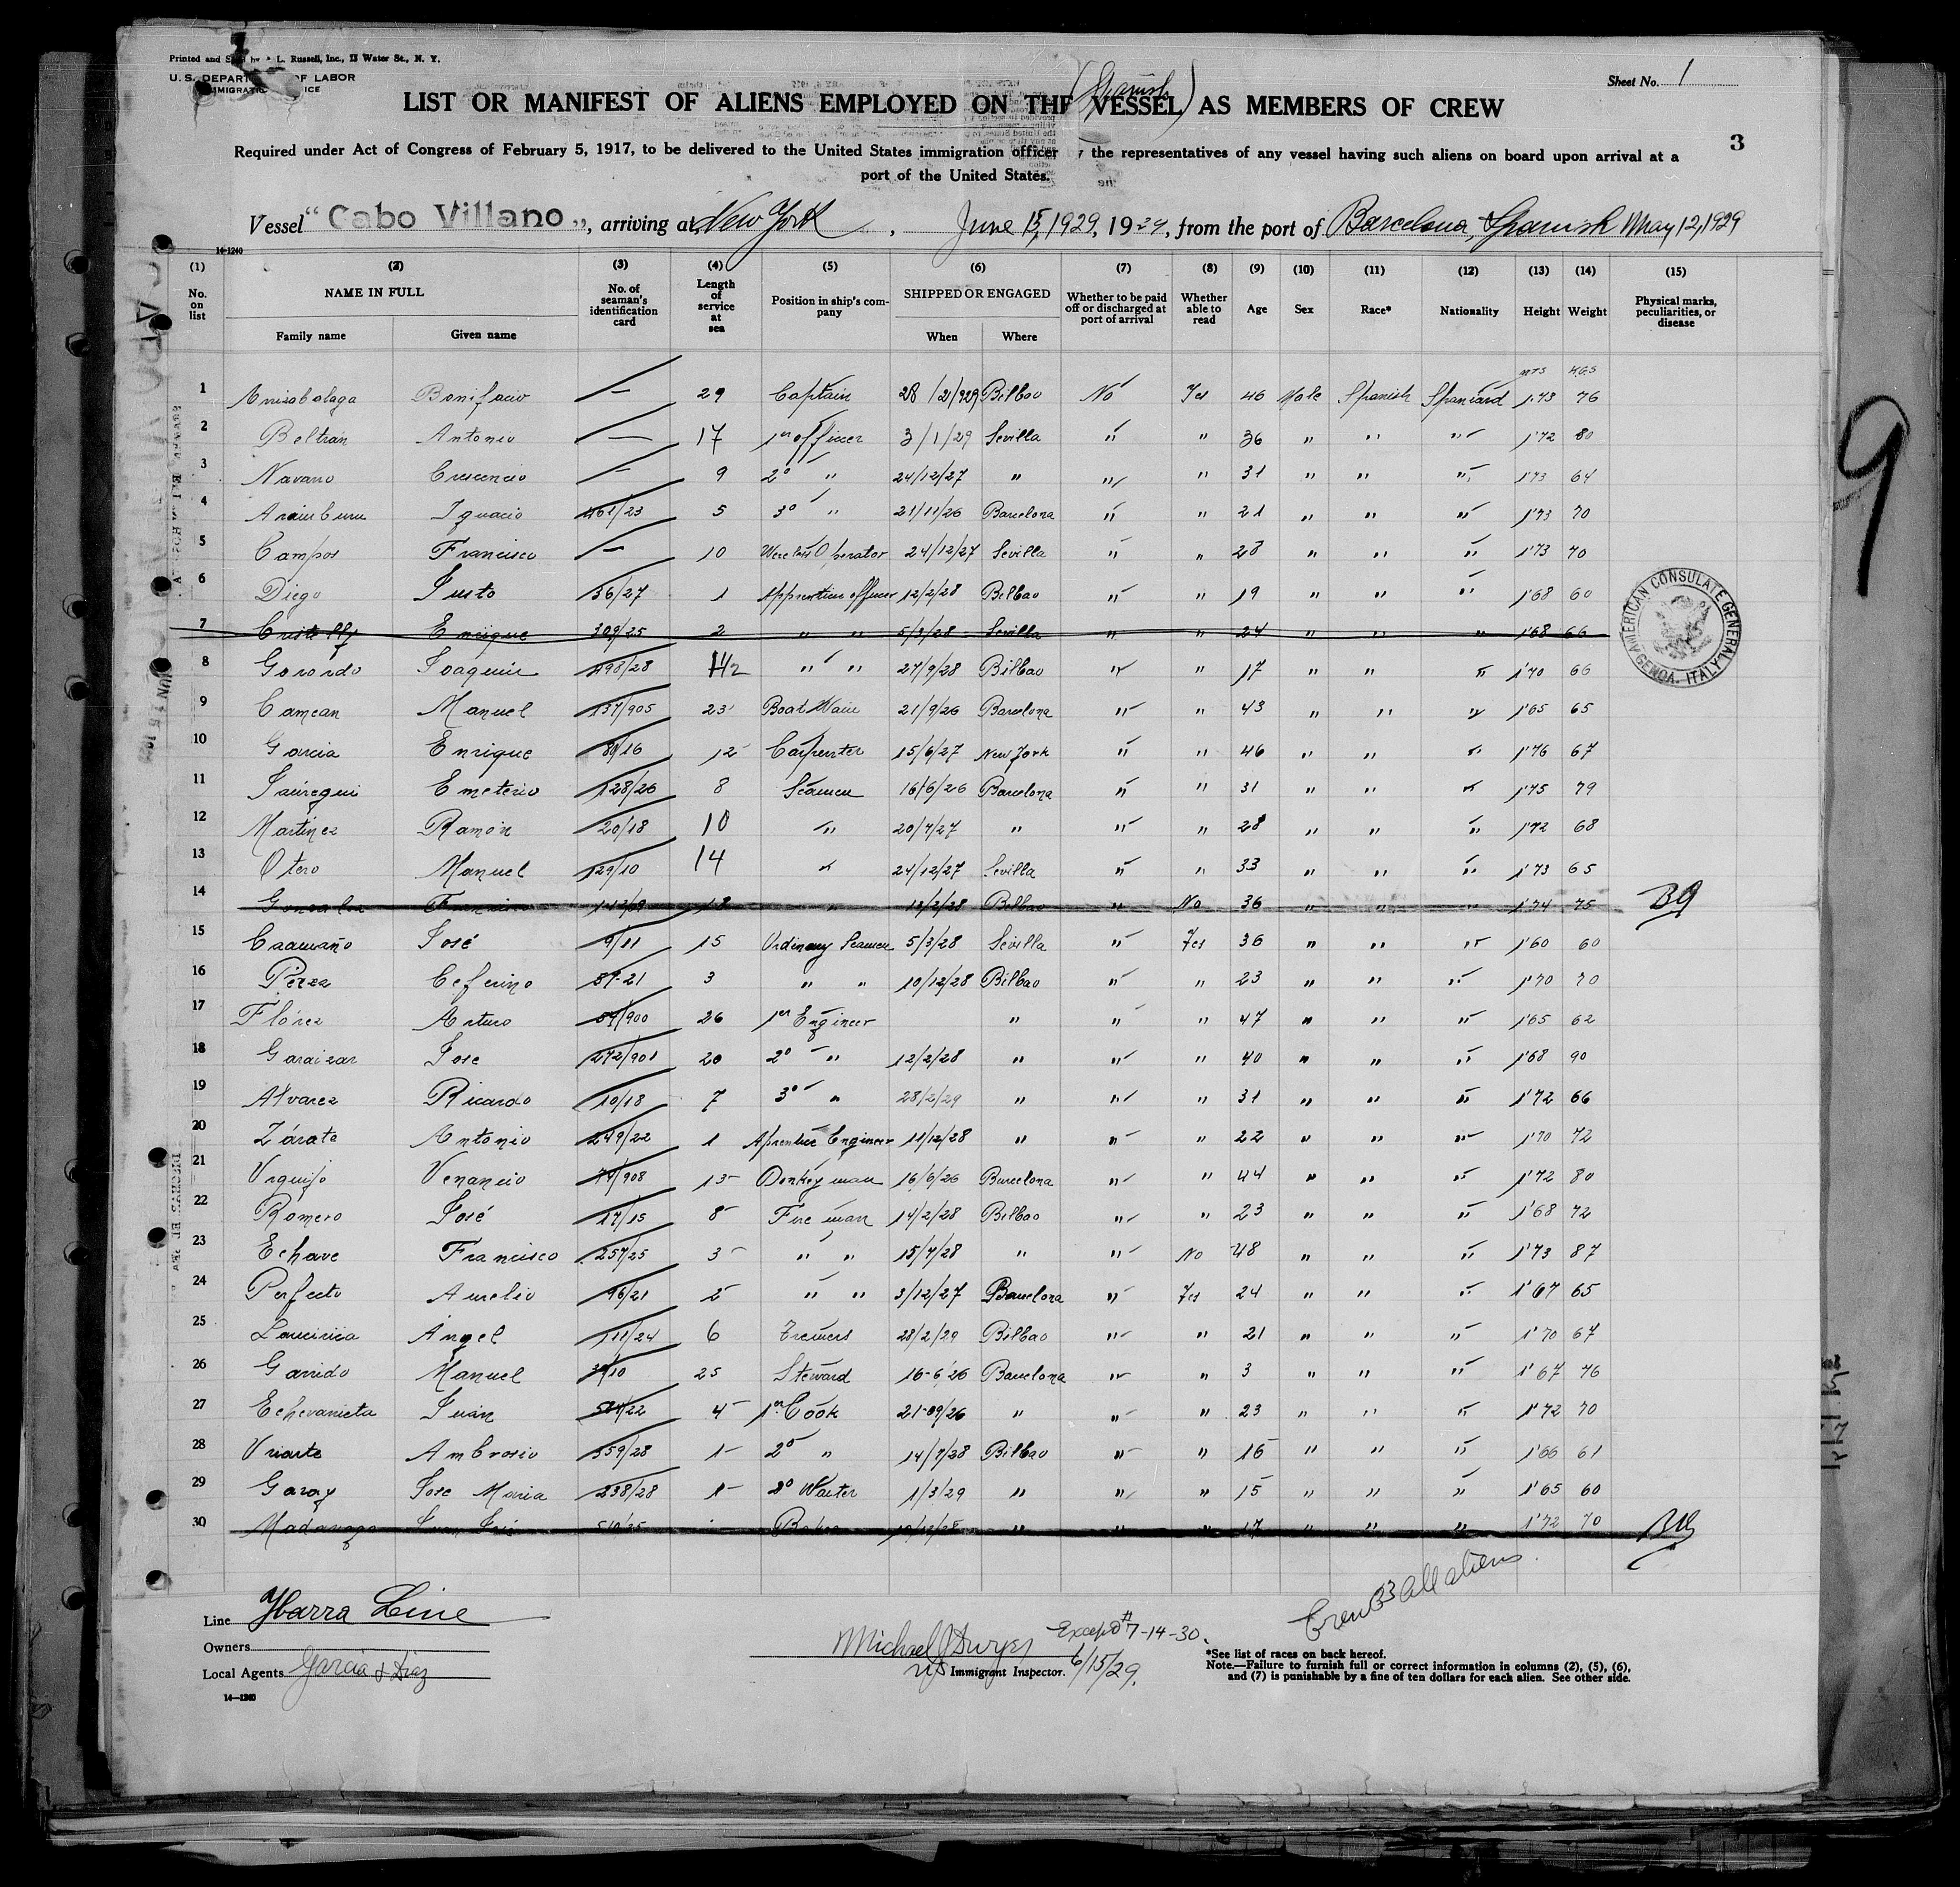 Printed and Sold by L. Russell, Inc., 13 Water St., N. Y.
U. S. DEPARTMENT OF LABOR
IMMIGRATION SERVICE
Sheet No. 1
(Spanish)
LIST OR MANIFEST OF ALIENS EMPLOYED ON THE VESSEL AS MEMBERS OF CREW
3
Required under Act of Congress of February 5, 1917, to be delivered to the United States immigration officer by the representatives of any vessel having such aliens on board upon arrival at a
port of the United States.
Vessel "Cabo Villano", arriving at New York, June 15, 1929, 1929, from the port of Barcelona, Spanish May 12, 1929
14-1240
(1) (2) (3) (4) (5) (6) (7) (8) (9) (10) (11) (12) (13) (14) (15)
No. on list NAME IN FULL Family name Given name No. of seaman's identification card Length of service at sea Position in ship's company SHIPPED OR ENGAGED When Where Whether to be paid off or discharged at port of arrival Whether able to read Age Sex Race* Nationality Height Weight Physical marks, peculiarities, or disease
mts kgs
1 Bonifacio — 29 Captain 28/2/929 Bilbao No Yes 46 Male Spanish Spaniard 1'73 76
2 Beltran Antonio — 17 1er officer 3/1/29 Sevilla " " 36 " " " 1'72 80
3 Navarro Crescencio — 9 2o " 24/12/27 " " " 31 " " " 1'73 64
4 Aramburu Ignacio 461/23 5 3o " 21/11/26 Barcelona " " 21 " " " 1'73 70
5 Campos Francisco — 10 Wereless Operator 24/12/27 Sevilla " " 28 " " " 1'73 70
6 Diego Justo 36/27 1 Apprentice officer 12/2/28 Bilbao " " 19 " " " 1'68 60
7 Enrique 309/25 2 " " 5/3/28 Sevilla " " 24 " " " 1'68 66
8 Gorondo Joaquin 298/28 1 1/2 " " 27/9/28 Bilbao " " 17 " " " 1'70 66
9 Camean Manuel 137/905 23 Boat Wain 21/9/26 Barcelona " " 43 " " " 1'65 65
10 Garcia Enrique 80/16 12 Carpenter 15/6/27 New York " " 46 " " " 1'76 67
11 Jauregui Emeterio 128/26 8 Seamen 16/6/26 Barcelona " " 31 " " " 1'75 79
12 Martinez Ramón 20/18 10 " 20/7/27 " " " 28 " " " 1'72 68
13 Otero Manuel 29/10 14 " 24/12/27 Sevilla " " 33 " " " 1'73 65
14 Gonzalez Francisco 18 " 12/2/28 Bilbao " No 36 " " " 1'74 75
15 Caamaño José 9/11 15 Ordinary Seamen 5/3/28 Sevilla " Yes 36 " " " 1'60 60
16 Pérez Ceferino 87-21 3 " " 10/12/28 Bilbao " " 23 " " " 1'70 70
17 Flórez Arturo 59/900 26 1er Engineer " " " 47 " " " 1'65 62
18 Garaizar Jose 272/901 20 2o " 12/2/28 " " " 40 " " " 1'68 90
19 Alvarez Ricardo 10/18 7 3o " 28/2/29 " " " 31 " " " 1'72 66
20 Zárate Antonio 249/22 1 Aprentice Engineer 11/12/28 " " " 22 " " " 1'70 72
21 Urquijo Venancio 74/908 13 Donkey man 16/6/26 Barcelona " " 44 " " " 1'72 80
22 Romero José 17/15 8 Fire man 14/2/28 Bilbao " " 23 " " " 1'68 72
23 Echave Francisco 257/25 3 " " 15/7/28 " " No 48 " " " 1'73 87
24 Perfecto Aurelio 96/21 2 " " 3/12/27 Barcelona " Yes 24 " " " 1'67 65
25 Angel 111/24 6 28/2/29 Bilbao " " 21 " " " 1'70 67
26 Garrido Manuel 30/10 25 Steward 16-6-26 Barcelona " " 3 " " " 1'67 76
27 Echevarrieta Juan 501/22 4 1er Cook 21-09/26 " " " 23 " " " 1'72 70
28 Uriarte Ambrosio 359/28 1 2o " 14/7/28 Bilbao " " 16 " " " 1'66 61
29 Garay Jose Maria 238/28 1 2o Waiter 1/3/29 " " " 15 " " " 1'65 60
30 " " " 17 " " " 1'72 70
AMERICAN CONSULATE GENERAL GENOA, ITALY
9
Line Ybarra Line
Owners
Local Agents Garcia & Diaz
14—1240
Michael J Dwyer
Immigrant Inspector.
Except # 7-14-30.
6/15/29.
Crew 33 all aliens.
*See list of races on back hereof.
Note.—Failure to furnish full or correct information in columns (2), (5), (6),
and (7) is punishable by a fine of ten dollars for each alien. See other side.